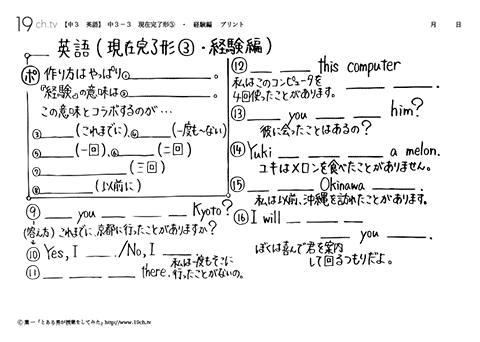 19ch.tv 【中3 英語】 中3-3 現在完了形③ ・ 経験編 プリント 月 日
英語(現在完了形③・経験編)
ポ 作り方はやっぱり①____。
『経験』の意味は②____。
この意味とコラボするのが…
③____(これまでに)、④____(一度も~ない)
⑤____(一回)、⑥____(二回)
⑦____(三回)
⑧____(以前に)
⑨____ you ____ ____ ____ Kyoto?
(答え方) これまでに、京都に行ったことがありますか?
⑩ Yes, I ____./No, I ____.
⑪ ____ ____ ____ ____ there.
私は一度もそこに
行ったことがないの。
⑫ ____ ____ ____ this computer
私はこのコンピュータを
____ ____.
4回使ったことがあります。
⑬ ____ you ____ ____ him?
彼に会ったことはあるの?
⑭ Yuki ____ ____ ____ a melon.
ユキはメロンを食べたことがありません。
⑮ ____ ____ ____ Okinawa ____.
私は以前、沖縄を訪れたことがあります。
⑯ I will ____ ____ ____
____ ____ you ____.
ぼくは喜んで君を案内
して回るつもりだよ。
Ⓒ 葉一「とある男が授業をしてみた」http://www.19ch.tv